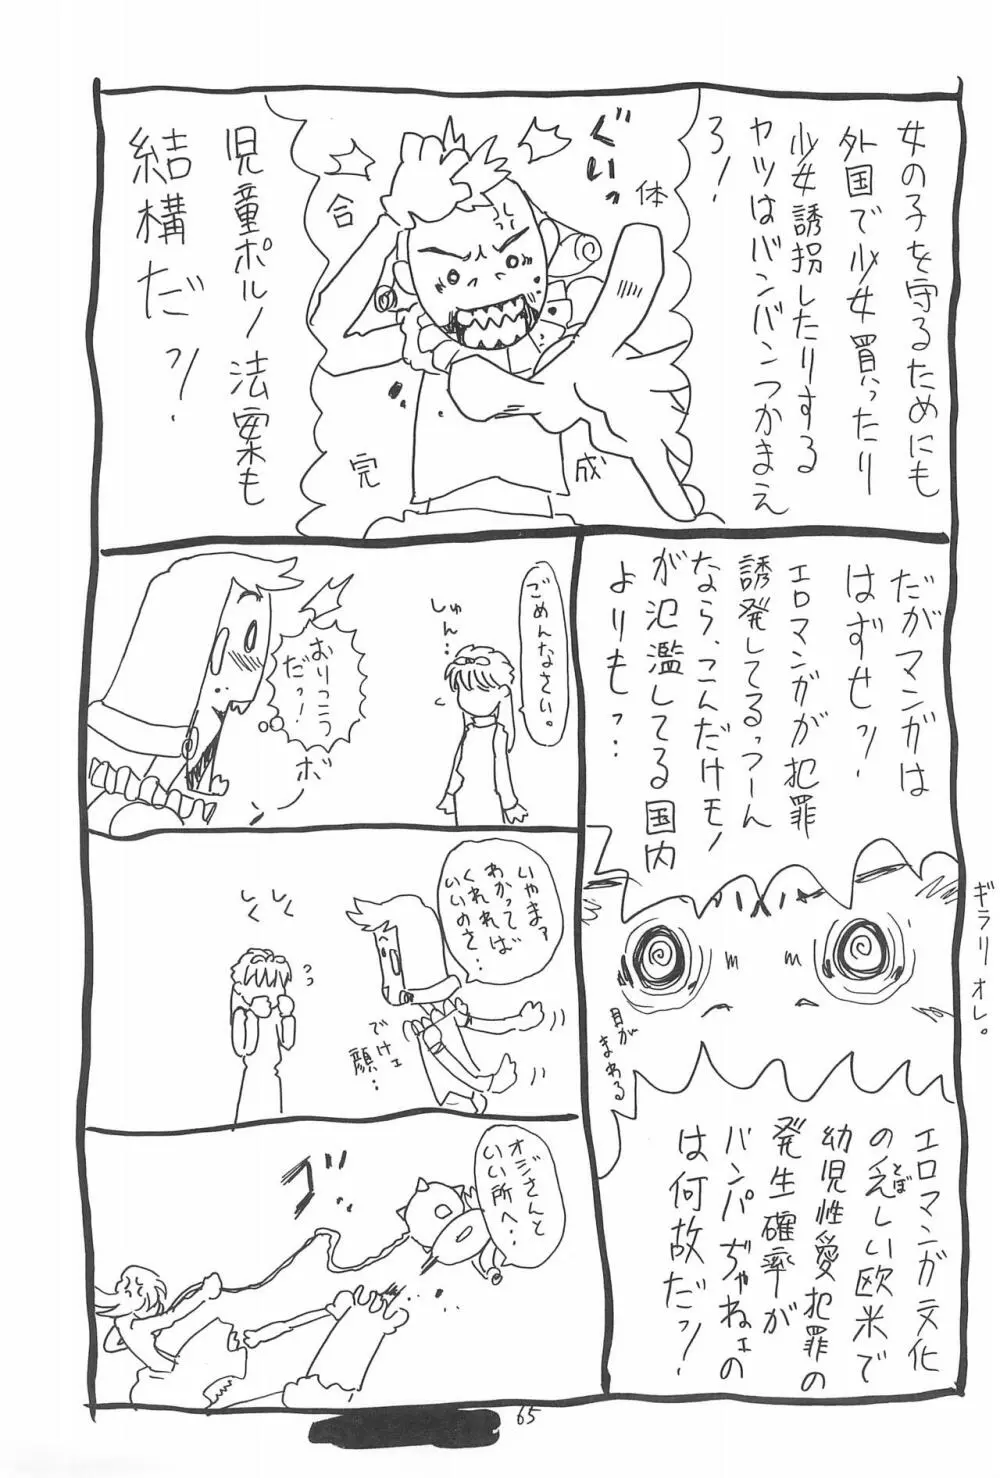 女の子を守るためにも
外国で少女買ったり
少女誘拐したりする
ヤツはバンバンつかまえ
ろ!
ぐいっ
合
体
完
成
児童ポルノ法案も
結構だッ!
だがマンガは
はずせッ!
エロマンガが犯罪
誘発してるっつーん
なら、こんだけモノ
が氾濫してる国内
よりも‥‥
ギラリオレ。
目が
まわる
エロマンガ文化
の乏しい欧米で
とぼ
幼児性愛犯罪の
発生確率が
バンパぢゃねェの
は何故だッ!
ごめんなさい。
しゅん‥
おりっこう
だっ!
ボ
ン
いやまァ
わかって
くれれば
いいのさ‥
しく
しく
でけェ
顔‥
オジさんと
いい所へ‥
ゴ
65